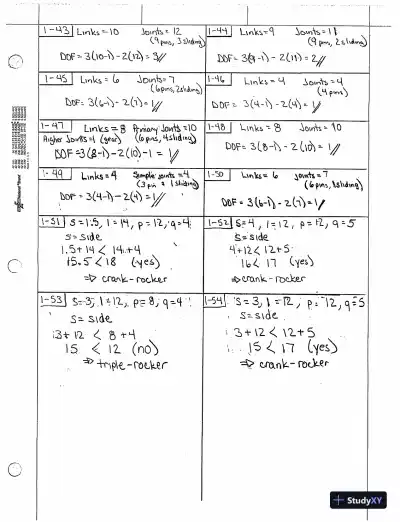 1-43 Links=10 Joints=12
(9 pins, 3 sliding)
DOF=3(10-1)-2(12)=3//
1-44 Links=9 Joints=11
(9 pins, 2 sliding)
DOF=3(9-1)-2(11)=2//
1-45 Links=6 Joints=7
(6 pins, 2 sliding)
DOF=3(6-1)-2(7)=1//
1-46 Links=4 Joints=4
(4 pins)
DOF=3(4-1)-2(4)=1//
1-47 Links=8 Primary Joints=10
Higher Joints=1 (gear) (6 pins, 4 sliding)
DOF=3(8-1)-2(10)-1=1//
1-48 Links=8 Joints=10
DOF=3(8-1)-2(10)=1//
1-49 Links=4 Joints=4
(3 pin 1 sliding)
DOF=3(4-1)-2(4)=1//
1-50 Links=6 Joints=7
(6 pins, 1 sliding)
DOF=3(6-1)-2(7)=1//
1-51 s=1.5, l=14, p=12, q=4
s=side
1.5+14<14+4
15.5<18 (yes)
⇒ crank-rocker
1-52 s=4, l=12, p=12, q=5
s=side
4+12<12+5
16<17 (yes)
⇒ crank-rocker
1-53 s=3, l=12, p=8, q=4
s=side
3+12<8+4
15<12 (no)
⇒ triple-rocker
1-54 s=3, l=12, p=12, q=5
s=side
3+12<12+5
15<17 (yes)
⇒ crank-rocker
StudyXY